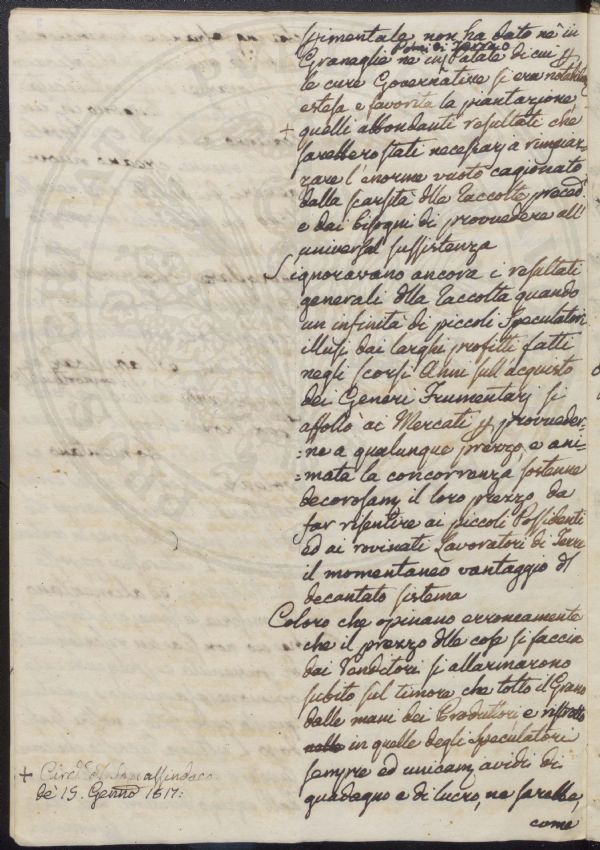 sprimentale, non ha dato nè in
Pomi di Terra o
Granaglie nè in Patate di cui p
le cure Governative si era notabilm
estesa e favorita la piantazione,
+ quelli abbondanti resultati che
sarebbero stati necessarj a rimpiaz=
zare l'enorme vuoto cagionato
dalla scarsità dlle Raccolte preced.
e dai bisogni di provvedere all'
universal sussistenza
S'ignoravano ancora i resultati
generali dlla Raccolta quando
un infinità di piccoli Speculatori
illusi dai larghi profitti fatti
negli scorsi Anni sull'acquisto
dei Generi Frumentarj si
affollò ai Mercati p provveder=
=ne a qualunque prezzo, e ani=
=mata la concorrenza sostenne
decorosam il loro prezzo da
far risentire ai piccoli Possidenti
ed ai rovinati Lavoratori di Terre
il momentaneo vantaggio dl
decantato sistema
Coloro che opinano erroneamente
che il prezzo dlle cose si faccia
dai Venditori si allarmarono
subito sul timore che tolto il Grano
dalle mani dei Produttori e ristretto
nelle in quelle degli speculatori
sempre ed unicam avidi di
guadagno e di lucro, ne sarebbe,
come
+ Circ. dl Soprassindaco
de' 15. Genn.o 1817: